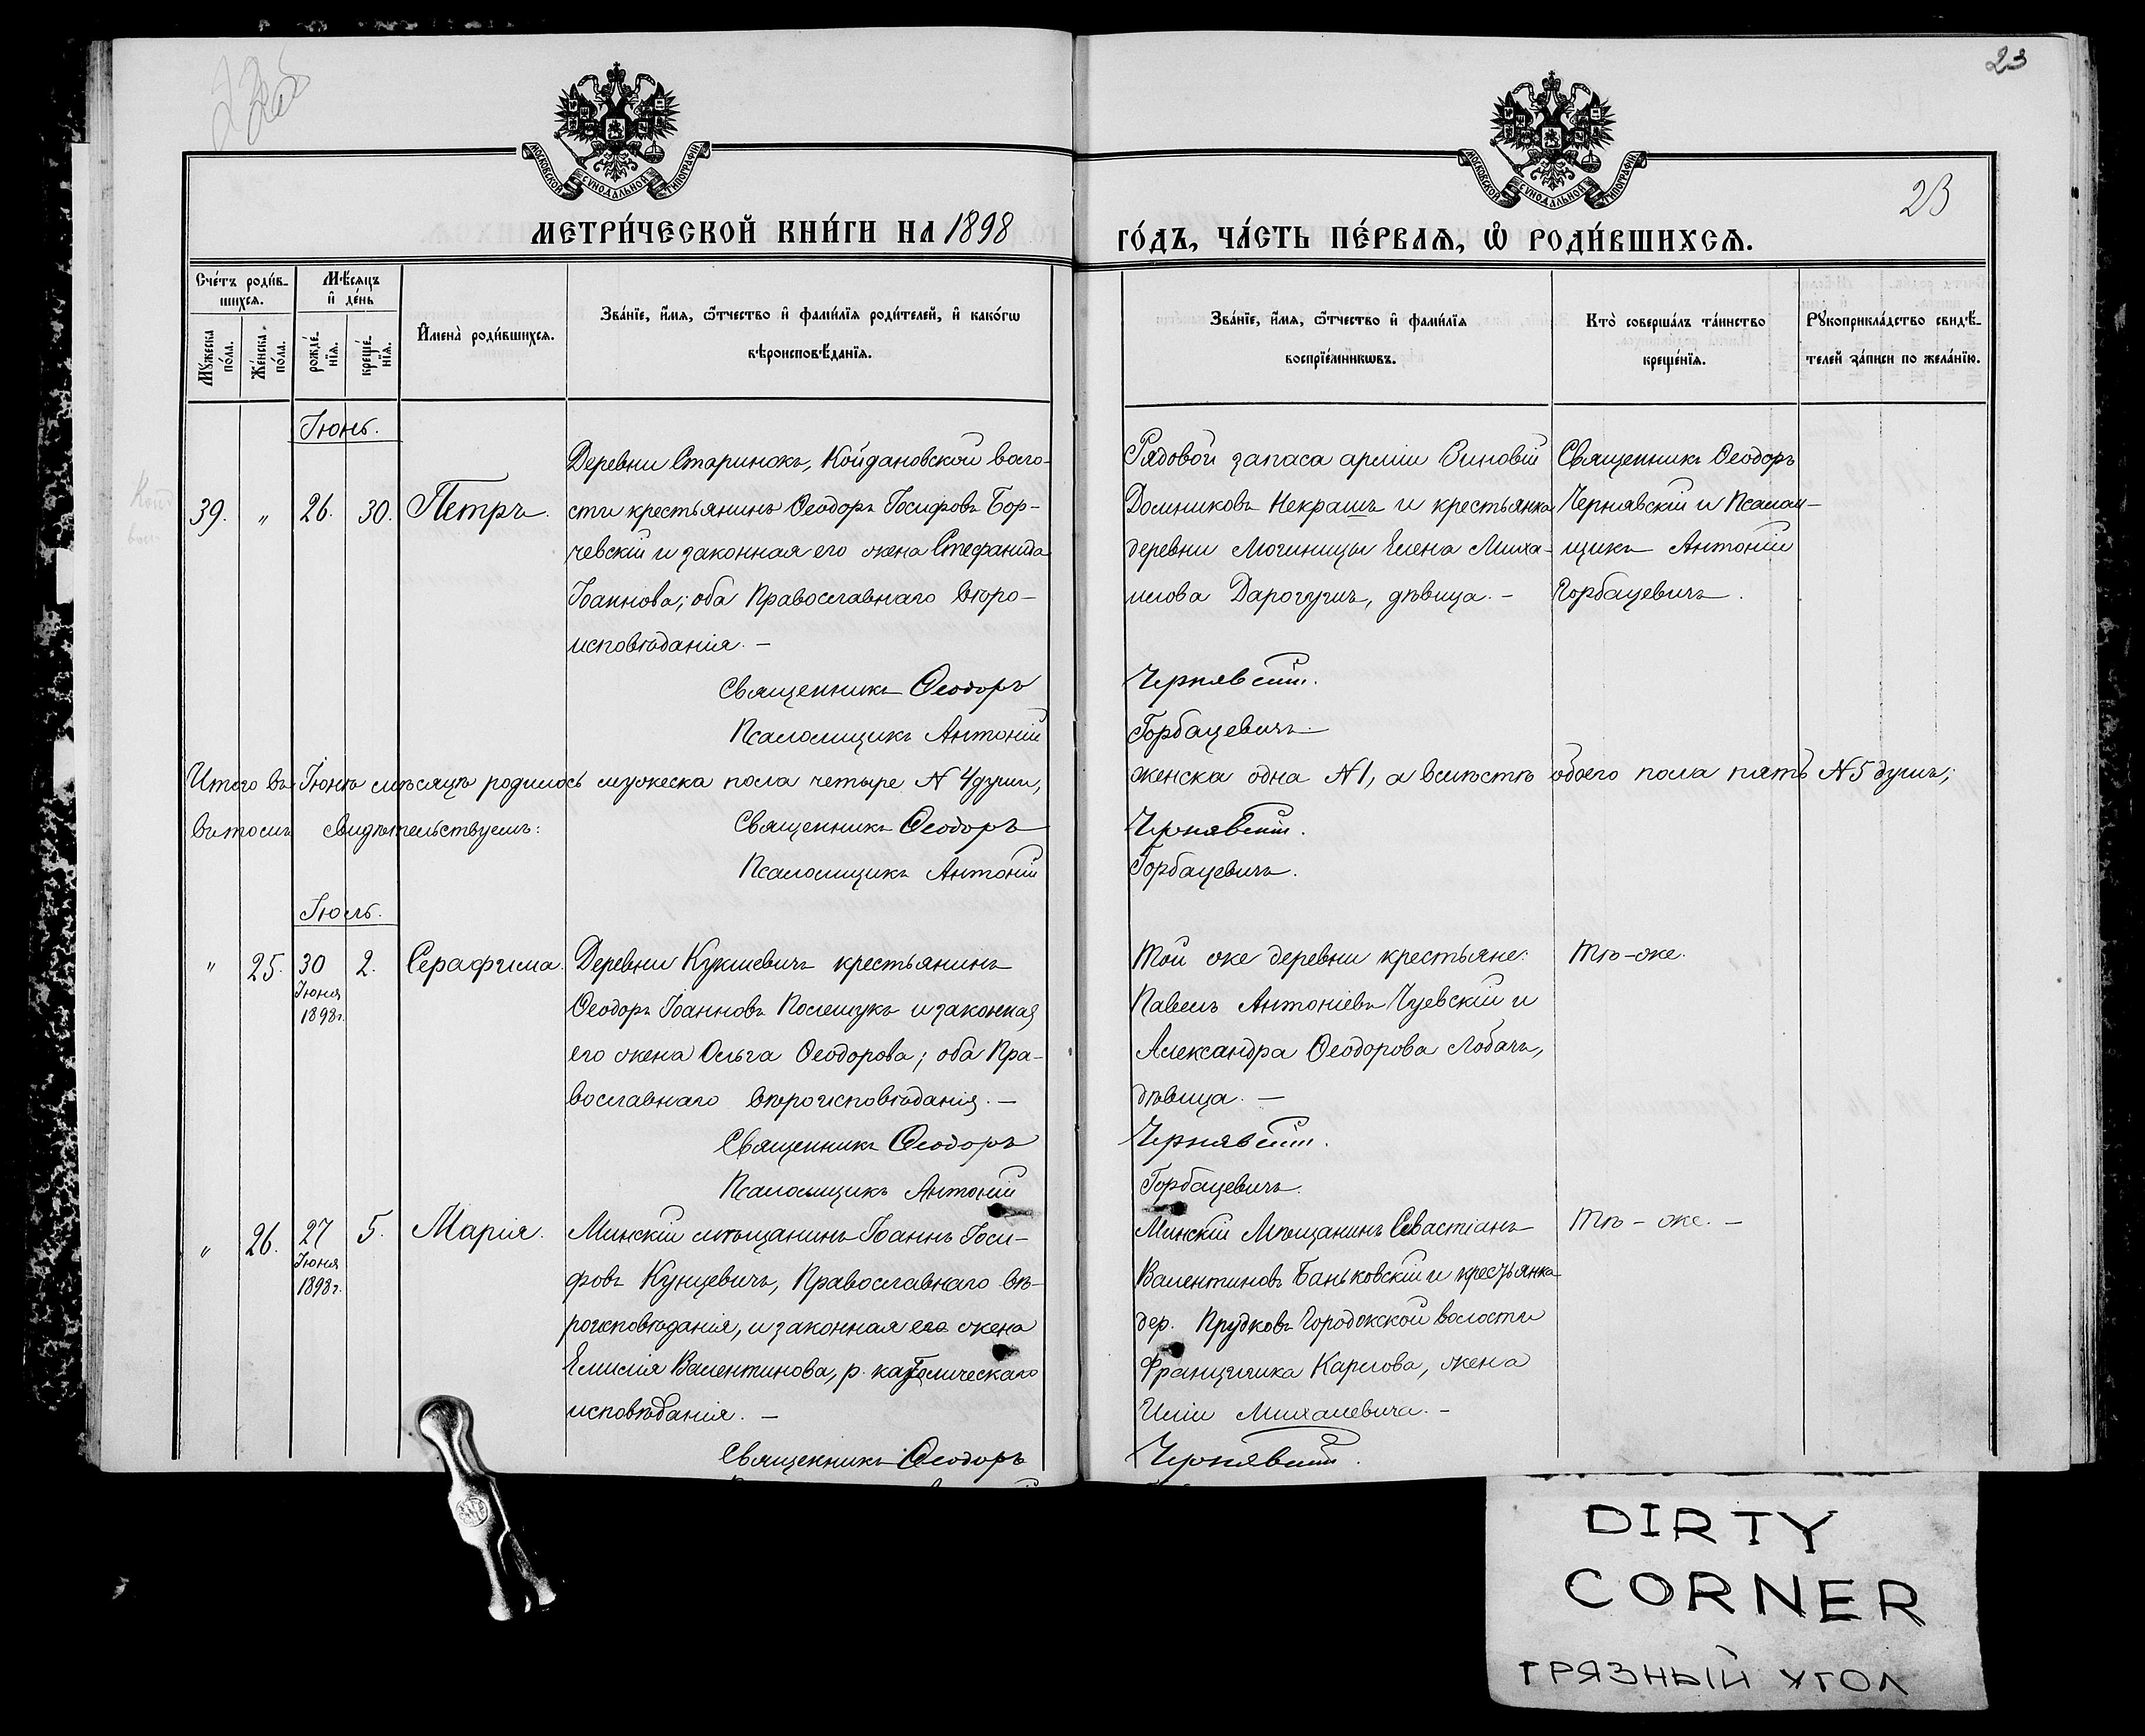 23
МОСКОВСКОЙ СУНОДАЛЬНОЙ ТИПОГРАФІИ
МОСКОВСКОЙ СУНОДАЛЬНОЙ ТИПОГРАФІИ
23
МЕТРИ́ЧЕСКОЙ КНИ́ГИ НА 1898
ГО́ДЪ, ЧА́СТЬ ПЕ́РВАѦ, Ѡ҆ РОДИ́ВШИХСѦ.
Сче́тъ роди́в-
шихсѧ.
Мѣ́сѧцъ
и҆ де́нь
Мꙋ́жеска
по́ла.
Же́нска
по́ла.
рожде́-
нїѧ.
креще́-
нїѧ.
И҆мена̀ роди́вшихсѧ.
Зва́нїе, и҆́мѧ, ѻ҆́тчество и҆ фами́лїѧ роди́телей, и҆ како́гѡ
вѣроисповѣ́данїѧ.
Зва́нїе, и҆́мѧ, ѻ҆́тчество и҆ фами́лїѧ
воспрїе́мникѡвъ.
Кто̀ соверша́лъ та́инство
креще́нїѧ.
Рꙋкоприкла́дство свидѣ́-
телей за́писи по жела́нїю.
Іюнь.
39. " 26. 30. Петръ.
Деревни Старинокъ, Койдановской воло-
сти крестьянинъ Ѳеодоръ Іосифовъ Бор-
чевскій и законная его жена Стефанида
Іоаннова; оба Православнаго вѣро-
исповѣданія. —
Священникъ Ѳеодоръ
Псаломщикъ Антоній
Рядовой запаса арміи Зиновій
Домниковъ Некрашъ и крестьянка
деревни Могиницы Елена Миха-
илова Дарогучъ, дѣвица. —
Чернявскій.
Горбацевичъ.
Священникъ Ѳеодоръ
Чернявскій и Псалом-
щикъ Антоній
Горбацевичъ.
Итого въ Іюнѣ мѣсяцѣ родилось мужеска пола четыре № 4 души,
женска одна № 1, а вмѣстѣ обоего пола пять № 5 душъ;
въ томъ свидѣтельствуемъ:
Священникъ Ѳеодоръ
Чернявскій.
Псаломщикъ Антоній
Горбацевичъ.
Іюль.
" 25. 30 Іюня 1898г. 2. Серафима.
Деревни Кукшевичъ крестьянинъ
Ѳеодоръ Іоанновъ Полешукъ и законная
его жена Ольга Ѳеодорова; оба Пра-
вославнаго вѣроисповѣданія. —
Священникъ Ѳеодоръ
Псаломщикъ Антоній
Той же деревни крестьяне:
Павелъ Антоніевъ Чуевскій и
Александра Ѳеодорова Лобачъ,
дѣвица. —
Чернявскій.
Горбацевичъ.
Тѣ-же.
" 26. 27 Іюня 1898г. 5. Марія.
Минскій мѣщанинъ Іоаннъ Іоси-
фовъ Кунцевичъ, Православнаго вѣ-
роисповѣданія, и законная его жена
Емилія Валентинова, р. католическаго
исповѣданія. —
Священникъ Ѳеодоръ
Минскій Мѣщанинъ Севастіанъ
Валентиновъ Баньковскій и крестьянка
дер. Прудковъ Городокской волости
Францишка Карлова, жена
Иліи Михалевича. —
Чернявскій.
Тѣ-же. —
DIRTY
CORNER
ГРЯЗНЫЙ УГОЛ